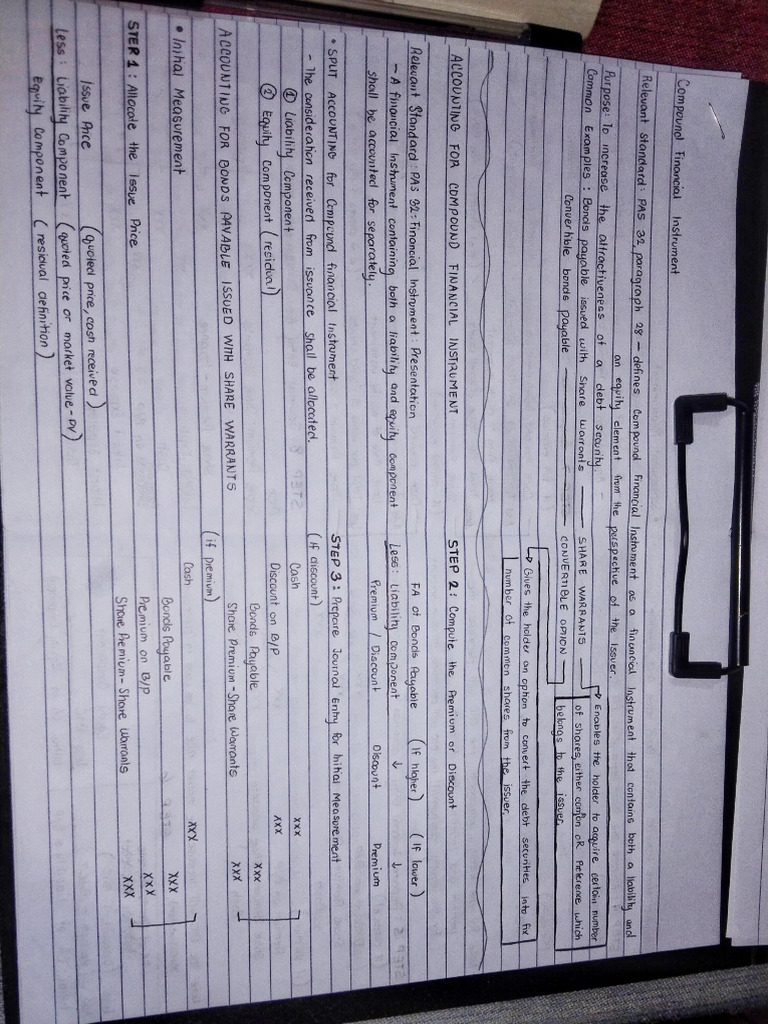 Compound Financial Instrument
Relevant Standard: PAS 32, paragraph 28 — defines Compound Financial Instrument as a financial instrument that contains both a liability and
an equity element from the perspective of the issuer.
Purpose: To increase the attractiveness of a debt security.
Common Examples: Bonds payable issued with share warrants — SHARE WARRANTS
Convertible bonds payable — CONVERTIBLE OPTION
Enables the holder to acquire certain number
of shares, either common OR Preference which
belongs to the issuer.
Gives the holder an option to convert the debt securities into fix
number of common shares from the issuer.
ACCOUNTING FOR COMPOUND FINANCIAL INSTRUMENT
Relevant Standard: PAS 32: Financial Instrument: Presentation
- A financial instrument containing both a liability and equity component
shall be accounted for separately.
• SPLIT ACCOUNTING for Compound financial instrument
- The consideration received from issuance shall be allocated.
① Liability Component
② Equity Component (residual)
ACCOUNTING FOR BONDS PAYABLE ISSUED WITH SHARE WARRANTS
• Initial Measurement
STEP 1: Allocate the Issue Price
Issue Price (quoted price, cash received)
Less: Liability Component (quoted price or market value - PV)
Equity Component (residual definition)
STEP 2: Compute the Premium or Discount
FA of Bonds Payable (If higher) (If lower)
Less: Liability component ↓ ↓
Premium / Discount Discount Premium
STEP 3: Prepare Journal Entry for Initial Measurement
(If discount)
Cash xxx
Discount on B/P xxx
Bonds Payable xxx
Share Premium - Share Warrants xxx
(if premium)
Cash xxx
Bonds Payable xxx
Premium on B/P xxx
Share Premium - Share Warrants xxx